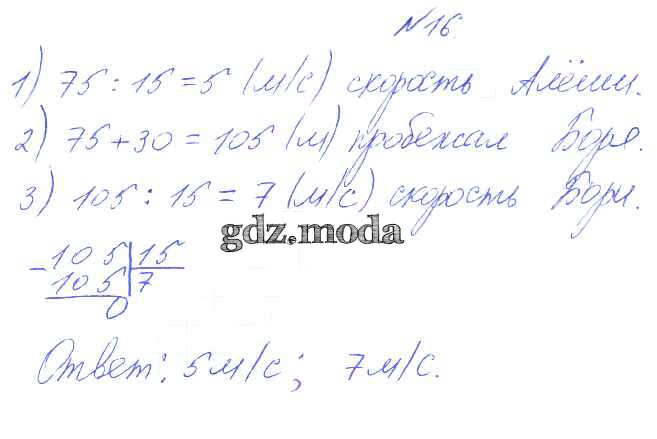 №16.
1) 75 : 15 = 5 (м/с) скорость Алёши.
2) 75 + 30 = 105 (м) пробежал Боря.
3) 105 : 15 = 7 (м/с) скорость Бори.
gdz.moda
- 105 | 15
105 | 7
0
Ответ: 5 м/с; 7 м/с.